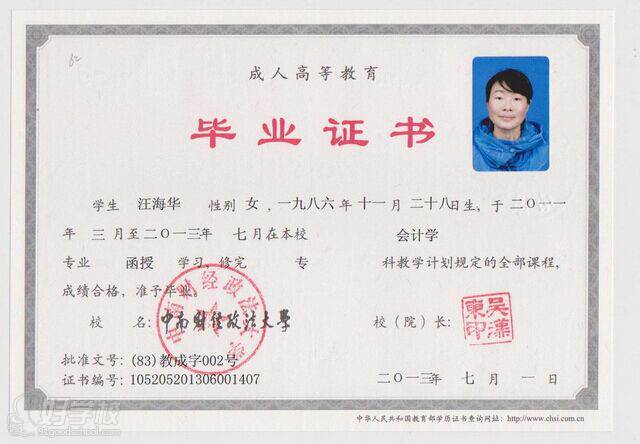 62
成人高等教育
毕业证书
学生 汪海华 性别 女 ,一九八六年 十一月 二十八日生,于二〇一一
年 三 月至二〇一三年 七月在本校 会计学
专业 函授 学习,修完 专 科教学计划规定的全部课程,
成绩合格,准予毕业。
校 名:中南财经政法大学 校(院)长:
吴汉东印
中南财经政法大学
批准文号:(83)教成字002号
证书编号:105205201306001407 二〇一三年 七 月 一 日
中华人民共和国教育部学历证书查询网址:http://www.chsi.com.cn
好学校
91goodschool.com